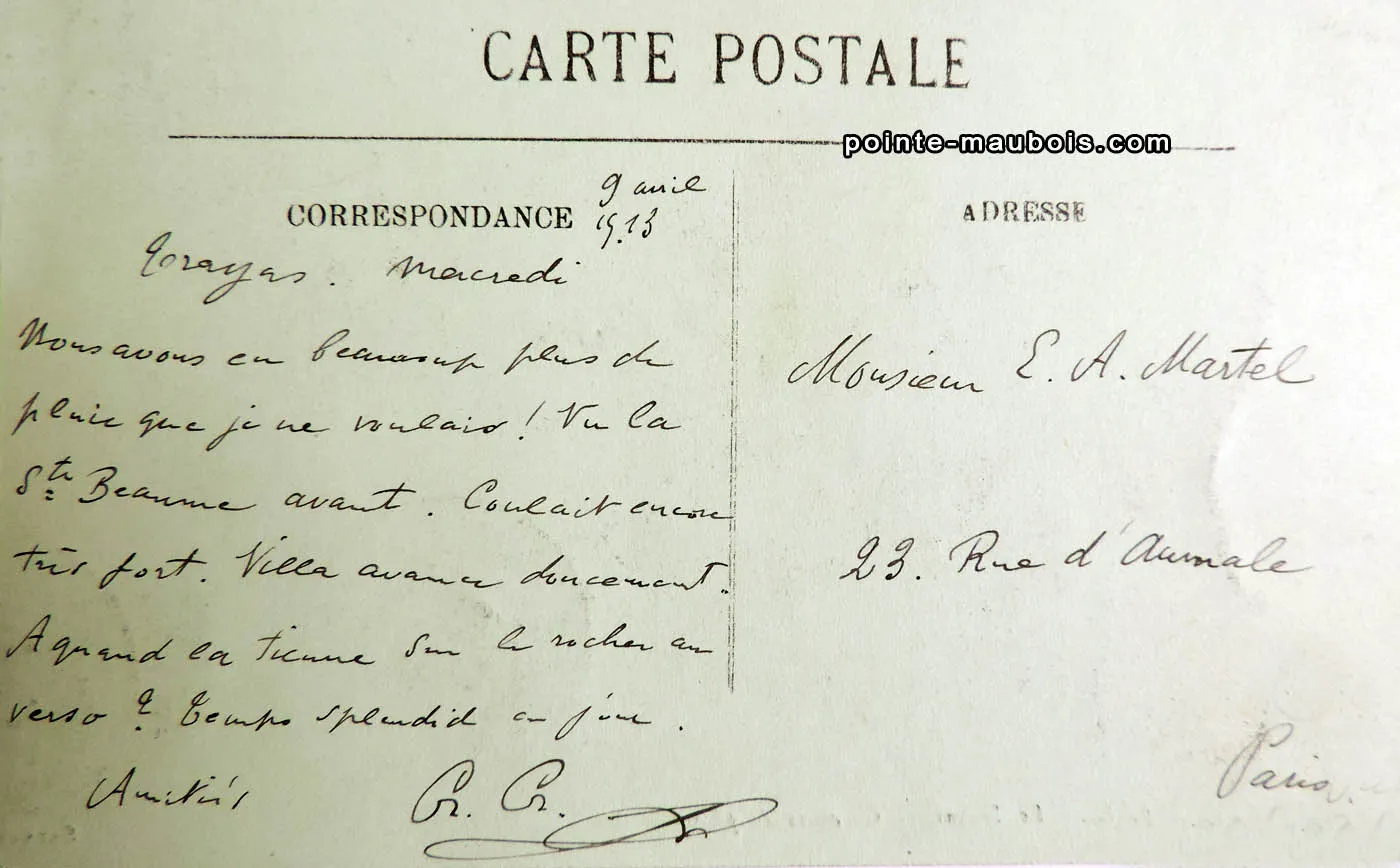 CARTE POSTALE
pointe-maubois.com
CORRESPONDANCE
9 avril
1913
Trayas. Mercredi
Nous avons eu beaucoup plus de
pluie que je ne voulais! Vu la
Ste Beaume avant. Coulait encore
très fort. Villa avance doucement.
A quand la tienne sur le rocher au
verso? Temps splendid ce jour.
Amitiés
ADRESSE
Monsieur E. A. Martel
23. Rue d'Aumale
Paris